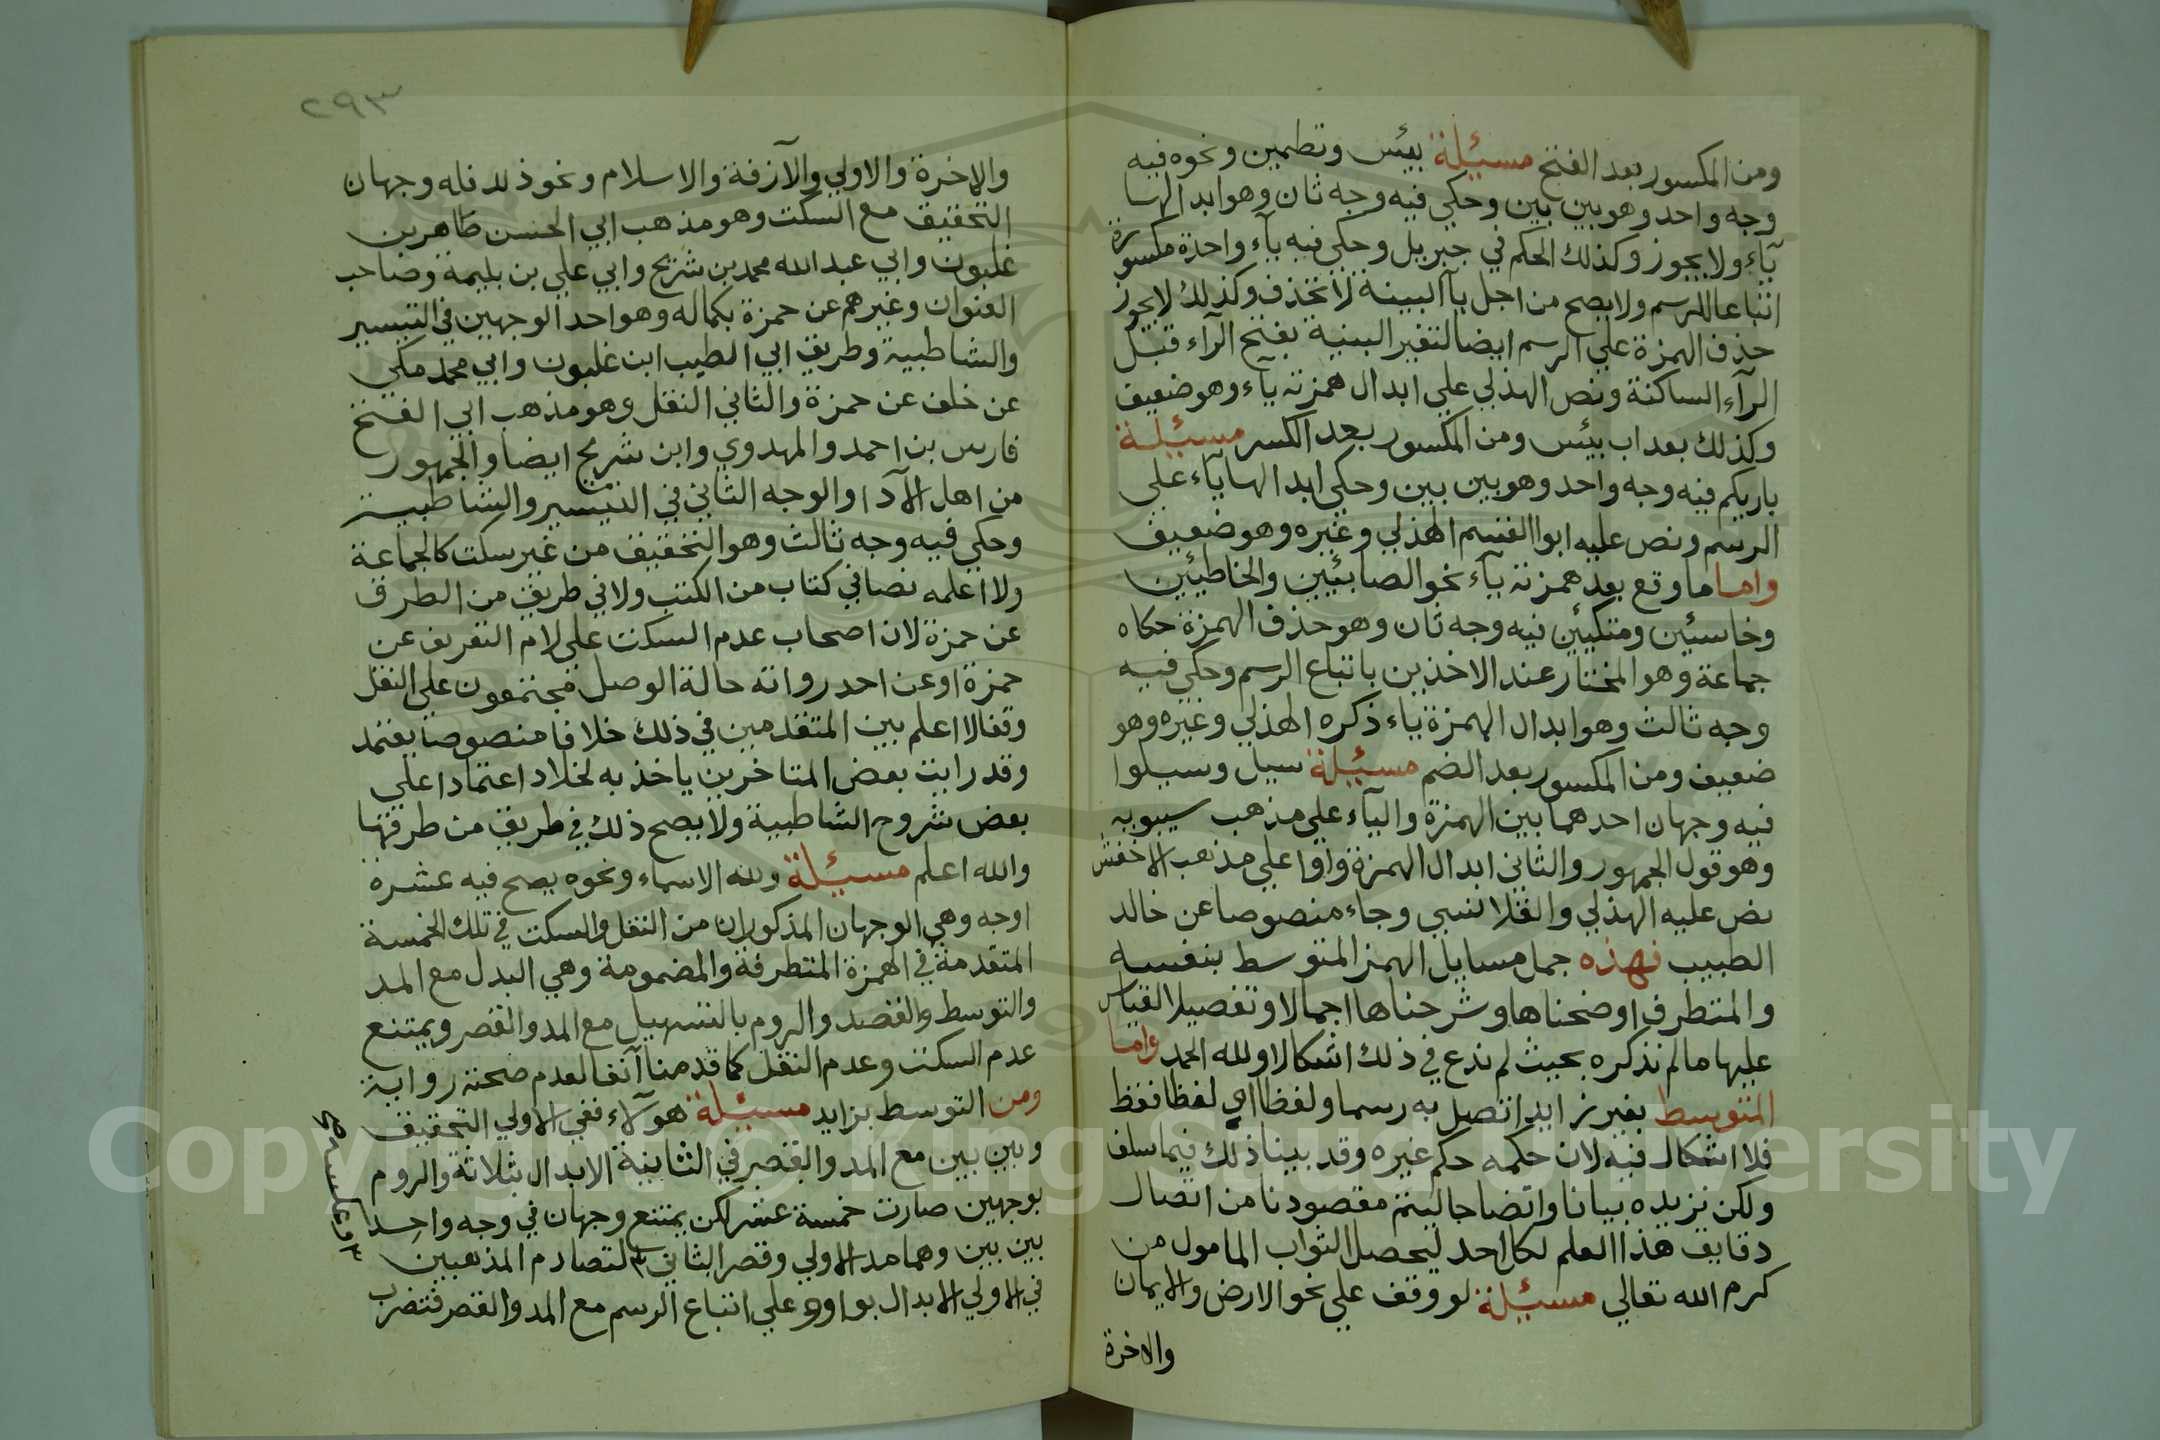 ومن المكسور بعد الفتح مسيئلة بيئس وتطمين ونحوه فيه
وجه واحد وهو بين بين وحكي فيه وجه ثان وهو ابدالها
يآء ولا يجوز وكذلك الحكم في جبريل وحكي فيه يآء واحدة مكسورة
اتباعا للرسم ولا يصح من اجل يآ البينة لا تحذف وكذلك لا يجوز
حذف الهمزة علي الرسم ايضا لتغير البنية بفتح الرآء قبل
الرآء الساكنة ونص الهذلي علي ابدال همزته يآء وهو ضعيف
وكذلك بعداب بيئس ومن المكسور بعد الكسر مسيئلة
باريكم فيه وجه واحد وهو بين بين وحكي ابدالها يآء علي
الرسم ونص عليه ابوا القسم الهذلي وغيره وهو ضعيف
واما ما وقع بعد همزته يآء نحو الصابئيين والخاطيئين
وخاسئين ومتكيئن فيه وجه ثان وهو حذف الهمزة حكاه
جماعة وهو المختار عند الاخذين باتباع الرسم وحكي فيه
وجه ثالث وهو ابدال الهمزة ياء ذكره الهذلي وغيره وهو
ضعيف ومن المكسور بعد الضم مسيئلة سيل وسيلوا
فيه وجهان احدهما بين الهمزة واليآء علي مذهب سيبويه
وهو قول الجمهور والثاني ابدال الهمزة واوا علي مذهب الاخفش
نص عليه الهذلي والقلانسي وجاء منصوصا عن خالد
الطبيب فهذه جمل مسايل الهمز المتوسط بنفسه
والمتطرف اوضحناها وشرحناها اجمالا وتفصيلا لقياس
عليها ما لم نذكره بحيث لم ندع في ذلك اشكالا ولله الحمد واما
المتوسط بغيره زايد اتصل به رسما ولفظا اي لفظا فقط
فلا اشكال فيه لان حكمه حكم غيره وقد بينا ذلك فيما سلف
ولكن نزيده بيانا واتضاحا ليتم مقصودنا من اتصال
دقايق هذا العلم لكل احد ليحصل الثواب المامول من
كرم الله تعالي مسيئلة لو وقف علي نحو الارض والايمان
والاخرة
٢٩٣
والاخرة والاولي والآزفة والاسلام ونحو ذلك فله وجهان
التحقيق مع السكت وهو مذهب ابي الحسن طاهر بن
غلبون وابي عبد الله محمد بن شريح وابي علي بن بليمة وصاحب
العنوان وغيرهم عن حمزة بكماله وهو احد الوجهين في التيسير
والشاطبية وطريق ابي الطيب ابن غلبون وابي محمد مكي
عن خلف عن حمزة والثاني النقل وهو مذهب ابي الفتح
فارس بن احمد والمهدوي وابن شريح ايضا والجمهور
من اهل الآدا والوجه الثاني في التيسير والشاطبية
وحكي فيه وجه ثالث وهو التحقيق من غير سكت كالجماعة
ولا اعلمه نصا في كتاب من الكتب ولا في طريق من الطرق
عن حمزة لان اصحاب عدم السكت علي لام التعريف عن
حمزة او عن احد رواته حالة الوصل مجتمعون علي النقل
وقفا لا اعلم بين المتقدمين في ذلك خلافا منصوصا يعتمد
وقد رايت بعض المتاخرين ياخذ به لخلاد اعتمادا علي
بعض شروح الشاطبية ولا يصح ذلك في طريق من طرقها
والله اعلم مسيئلة ولله الاسماء ونحوه يصح فيه عشرة
اوجه وهي الوجهان المذكوران من النقل والسكت في تلك الخمسة
المتقدمة في الهمزة المتطرفة والمضمومة وهي البدل مع المد
والتوسط والقصد والروم بالتسهيل مع المد والقصر ويمتنع
عدم السكت وعدم النقل كما قدمنا آنفا لعدم صحته رواية
ومن التوسط بزايد مسيئلة هولآء ففي الاولي التحقيق
وبين بين مع المد والقصر في الثانية الابدال بثلاثة والروم
بوجهين صارت خمسة عشر لكن يمتنع وجهان في وجه واحد
بين بين وهما مد الاولي وقصر الثاني لتصادم المذهبين
في الاولي الابدال بواو علي اتباع الرسم مع المد والقصر فتضرب
وعكسه